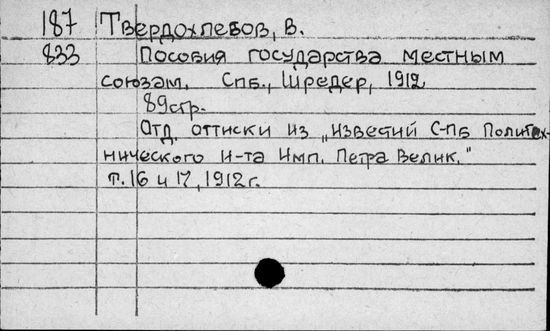 187 Твердохлебов, В.
833 Пособия государства местным
союзам. Спб., Шредер, 1912
89стр.
Отд. оттиски из „Известий С-Пб Политех-
нического И-та Имп. Петра Велик."
т. 16 и 17, 1912г.